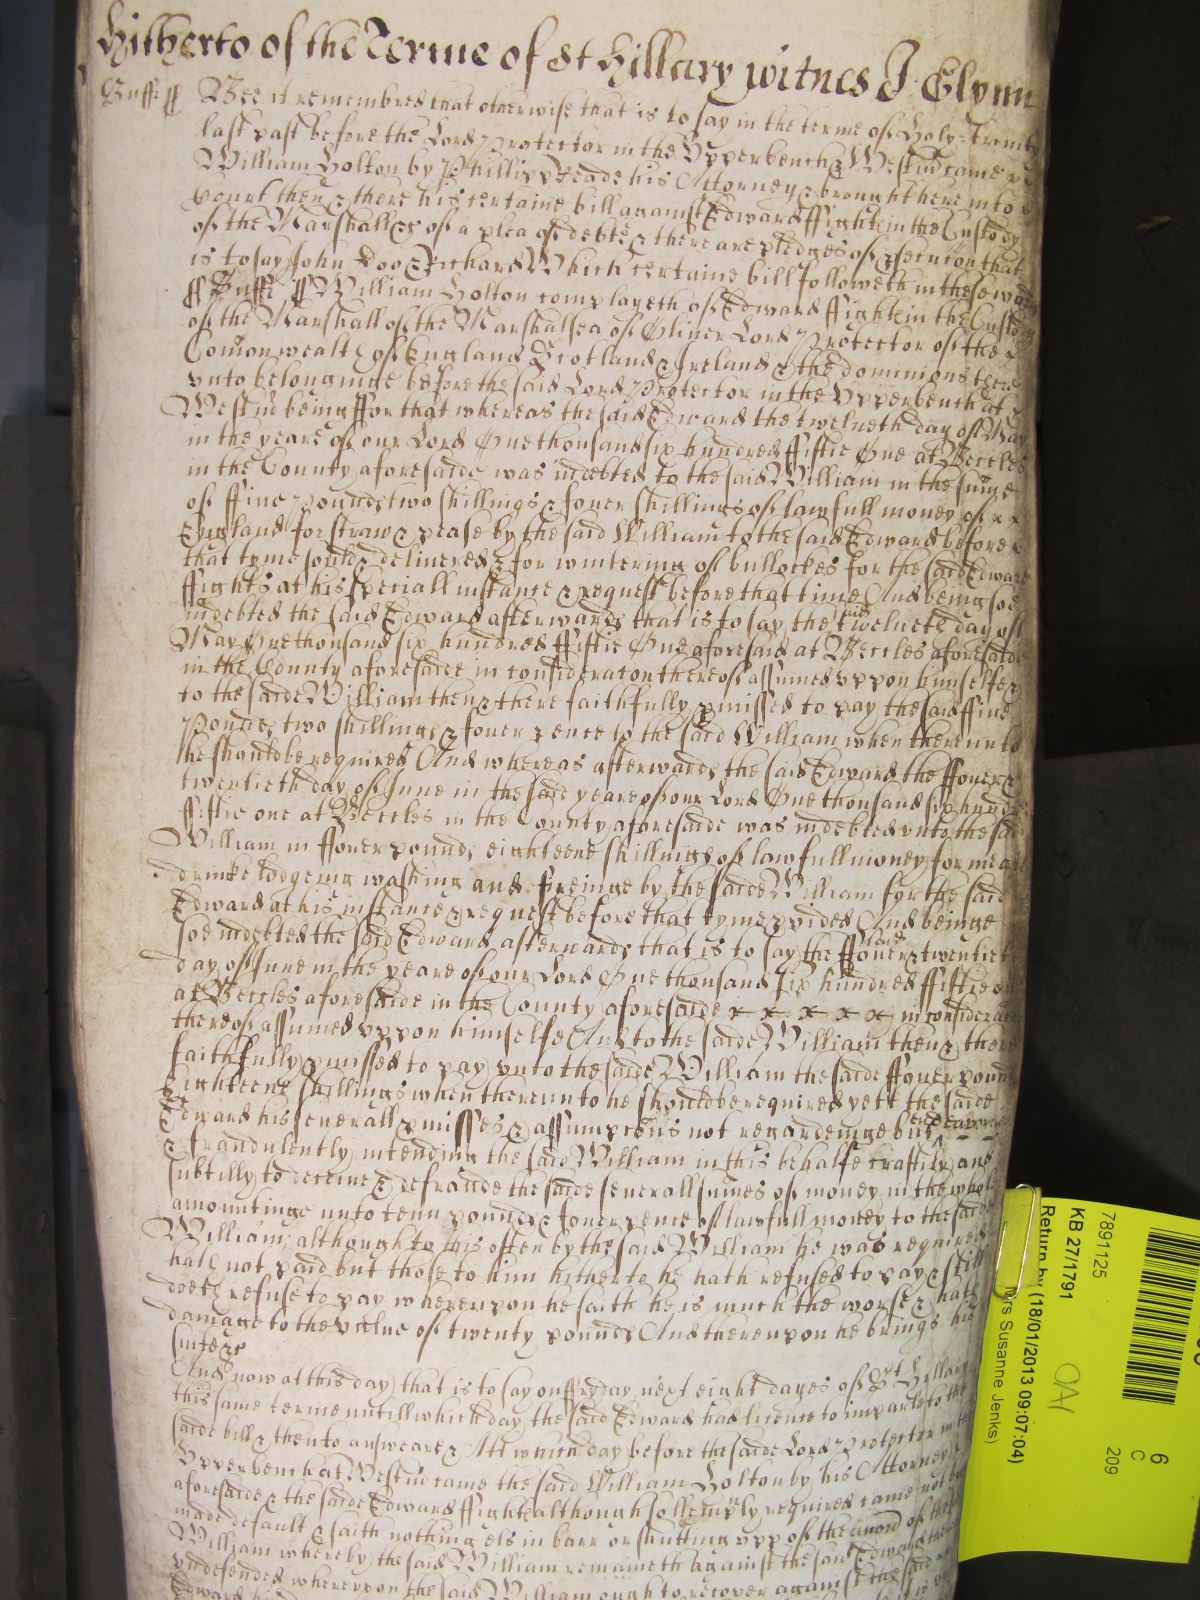 hitherto of the Terme of St Hillary witnes J Glynn
Suff ss Bee it remembred that otherwise that is to say in the terme of Holy Trinit
last past before the Lord Protector in the Upper bench & Westm came
William Holton by Phillipp Reade his Attorney & brought here into
court then & there his certaine bill against Edward ffight in the Custody
of the Marshall &c of a plea of debte & there are pledges of psecucon that
is to say John Doo & Richard Which certaine bill followeth in these wor
ss Suff ss William Holton complayeth of Edward ffight in the Custody
of the Marshall of the Marshalsea of Oliver Lord Protector of the
Comonwealth of England Scotland & Ireland & the dominions there
unto belonginge before the said Lord Protector in the Upper bench at
Westm being ffor that whereas the said Edward the twelveth day of May
in the yeare of our Lord One thousand six hundred ffiftie One at Beccles
in the County aforesaide was indebted to the said William in the sume
of ffive pounds two shillings & fower shillings of lawfull money of x x
England for straw & pease by the said William to the said Edward before
that tyme sould & delivered & for wintering of bullockes for the said Edward
ffight & at his speciall instance & request before that time And being soe
indebted the said Edward afterwards that is to say the said twelveth day of
May One thousand six hundred ffiftie One aforesaid at Beccles aforesaide
in the County aforesaide in consideraton thereof assumed uppon himselfe &
to the saide William then & there faithfully pmissed to pay the said ffive
Pounds two shillings & fower pence to the said William when thereunto
he should be required And whereas afterwards the said Edward the ffower &
twentieth day of June in the said yeare of our Lord One thousand six hund
ffiftie one at Beccles in the County aforesaide was indebted unto the said
William in ffower pounds eighteene shillings of lawfull money for mea
drinke lodgeing washing and by the saide William for the said
Edward at his instance & request before that tyme pvided And beinge
soe indebted the said Edward afterwards that is to say the said ffower & twentiet
day of June in the yeare of our Lord One thousand six hundred ffiftie on
at Beccles aforesaide in the County aforesaide x x x x x in considerat
thereof assumed uppon himselfe And to the saide William then & there
faithfully pmissed to pay unto the saide William the saide ffower pound
Eighteene shillings when thereunto he should be required yett the saide
Edward his severall pmisses & assumpcons not regardeinge but endeavor
& fraudulently intending the said William in this behalfe craftily and
subtilly to deceive & defraude the saide severall sumes of money in the whole
amountinge unto tenn pounds & fower pence of lawfull money to the saide
William, although to this often by the said William he was required
hath not paid but those to him hitherto he hath refused to pay & still
doeth refuse to pay whereupon he saith he is much the worse & hath
damage to the value of twenty pounds And thereupon he brings his
suite &c
And now at this day that is to say on ffryday next eight dayes of St Hillary
this same terme untill which day the said Edward had licence to imparle to the
saide bill & then to answeare & Att which day before the saide Lord Protector in the
Upper bench at Westm came the said William Holton by his Attorney
aforesaide & the saide Edward ffight although sollemply required came not but
made default & saith nothing els in barr or shutting upp of the accon of the said
William whereby the said William remaineth against the said Edward
undefended whereupon the said William ought to recover against the said
Edward
7891125
KB 27/1791
Return by (18/01/2013 09:07:04)
rs Susanne Jenks)
OA1
6
C
209